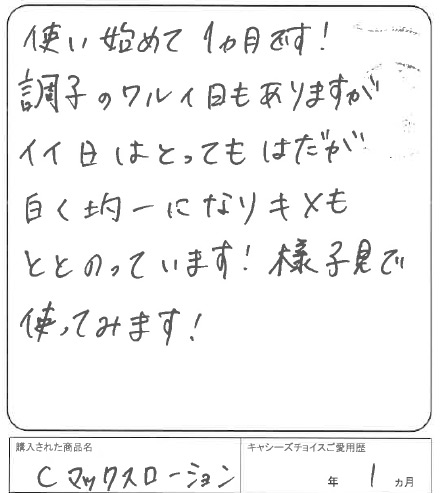 使い始めて1ヵ月です!
調子のワルイ日もありますが
イイ日はとってもはだが
白く均一になりキメも
ととのっています!様子見で
使ってみます!
購入された商品名
キャシーズチョイスご愛用歴
Cマックスローション
年 1 ヵ月